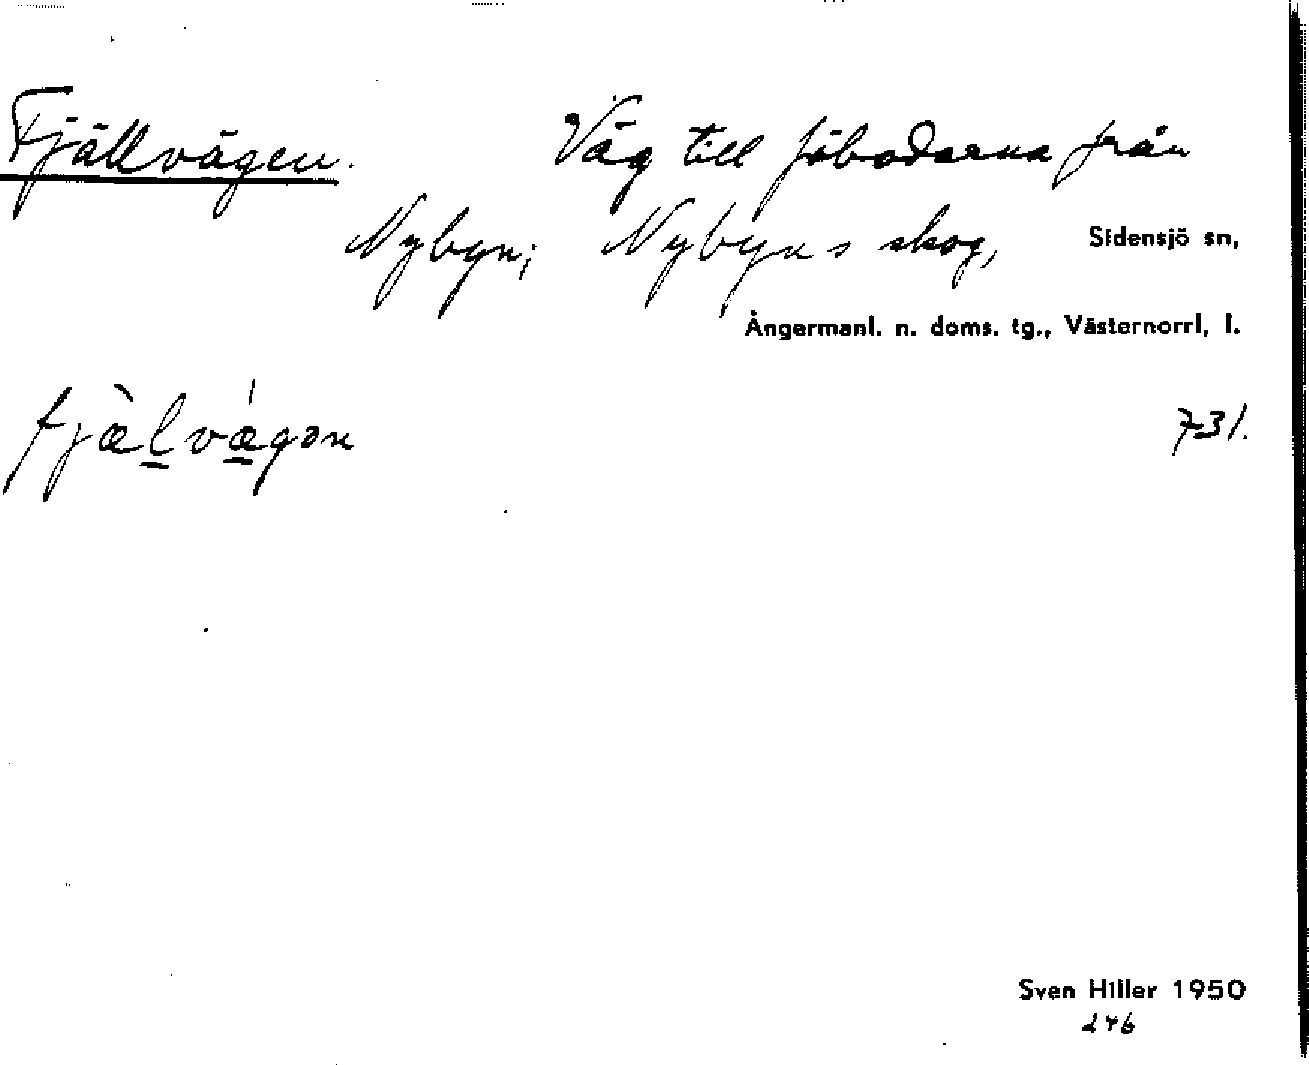 Fjällvägen. Väg till fäbodarna från
Nybyn; Nybyns skog, Sidensjö sn,
Ångermanl. n. doms. tg., Västernorrl. l.
fjæ̀lvǽgən 731.
Sven Hiller 1950